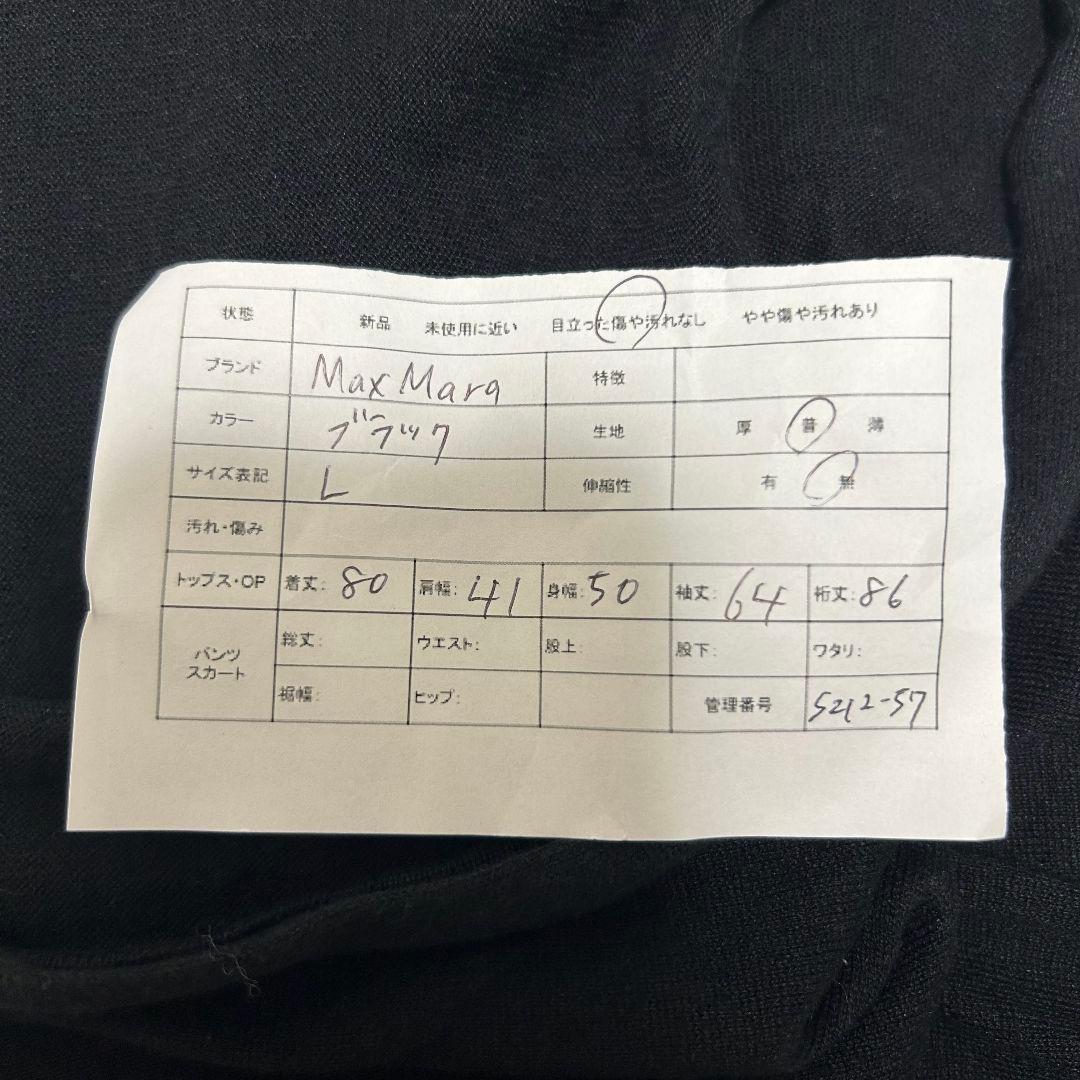 状態 新品 未使用に近い 目立った傷や汚れなし やや傷や汚れあり
ブランド MaxMara 特徴
カラー ブラック 生地 厚 普 薄
サイズ表記 L 伸縮性 有 無
汚れ・傷み
トップス・OP 着丈: 80 肩幅: 41 身幅: 50 袖丈: 64 裄丈: 86
パンツ スカート 総丈: ウエスト: 股上: 股下: ワタリ:
裾幅: ヒップ: 管理番号 5212-57